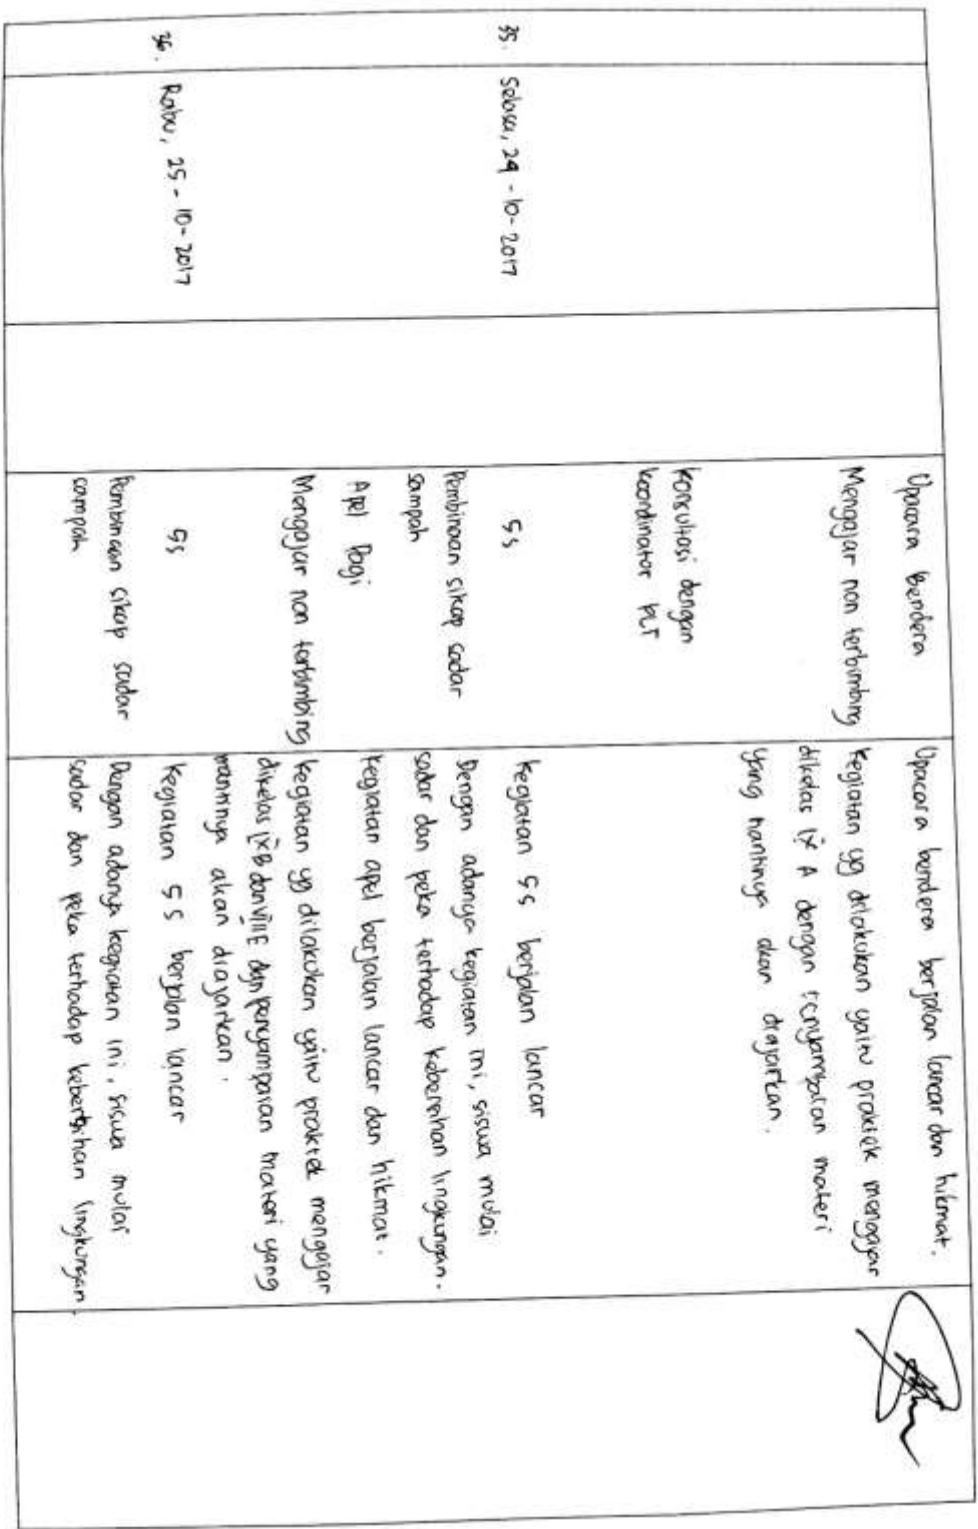 Upacara Bendera
Upacara bendera berjalan lancar dan hikmat.
Mengajar non terbimbing
Kegiatan yg dilakukan yaitu praktek mengajar
dikelas IX A dengan penyampaian materi
yang nantinya akan diajarkan.
Konsultasi dengan
koordinator PLT
35.
Selasa, 24 - 10 - 2017
5S
Kegiatan 5S berjalan lancar
Pembinaan sikap sadar
sampah
Dengan adanya kegiatan ini, siswa mulai
sadar dan peka terhadap kebersihan lingkungan.
Apel Pagi
Kegiatan apel berjalan lancar dan hikmat.
Mengajar non terbimbing
Kegiatan yg dilakukan yaitu praktek mengajar
dikelas IX B dan VIII E dan penyampaian materi yang
nantinya akan diajarkan.
36.
Rabu, 25 - 10 - 2017
5S
Kegiatan 5S berjalan lancar
Pembinaan sikap sadar
sampah
Dengan adanya kegiatan ini, siswa mulai
sadar dan peka terhadap kebersihan lingkungan.